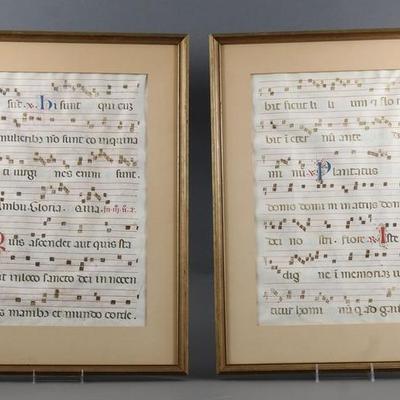 sūt. hi sunt qui cuz
mulieribꝰ nō sunt coinquina
ti uirgi nes enim sunt.
Gloria.
Quis ascendet aut quis sta
in loco sancto dei innocen
manibꝰ et mundo corde.
bit sicut li li um
bit ī eter nū ante
mi nū Plantatus
domo domini in atrijs domꝰ
dei no stri. flore Iste
dig ne ī memoriaz
titur homi nū q ad gau